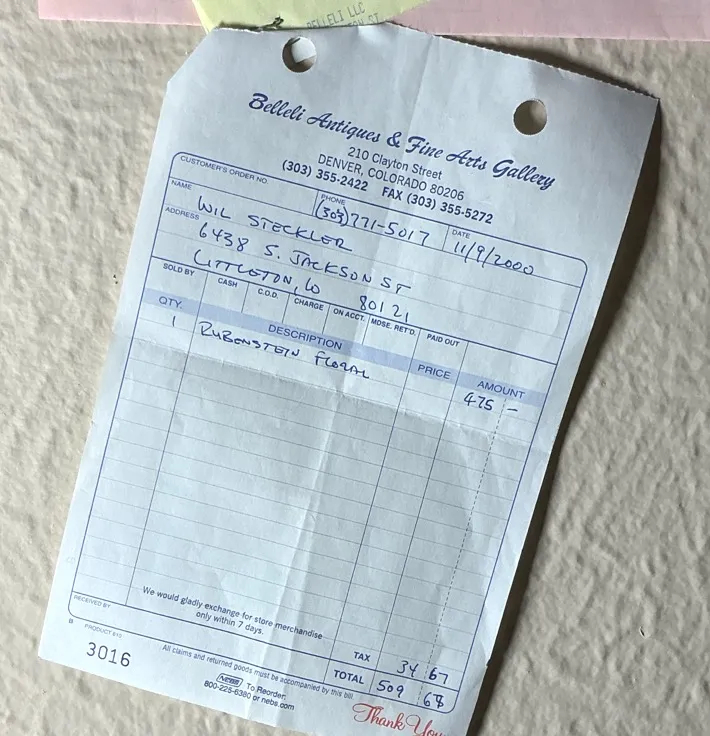 BELLELI LLC
Belleli Antiques & Fine Arts Gallery
210 Clayton Street
DENVER, COLORADO 80206
(303) 355-2422 FAX (303) 355-5272
CUSTOMER'S ORDER NO.
PHONE (303) 771-5017
DATE 11/9/2000
NAME WIL STECKLER
ADDRESS 6438 S. JACKSON ST
LITTLETON, CO 80121
SOLD BY CASH C.O.D. CHARGE ON ACCT. MDSE. RET'D. PAID OUT
QTY. DESCRIPTION PRICE AMOUNT
1 RUBENSTEIN FLORAL 475 –
We would gladly exchange for store merchandise
only within 7 days.
RECEIVED BY
TAX 34 67
TOTAL 509 68
PRODUCT 610
All claims and returned goods must be accompanied by this bill.
3016
NEBS To Reorder:
800-225-6380 or nebs.com
Thank You